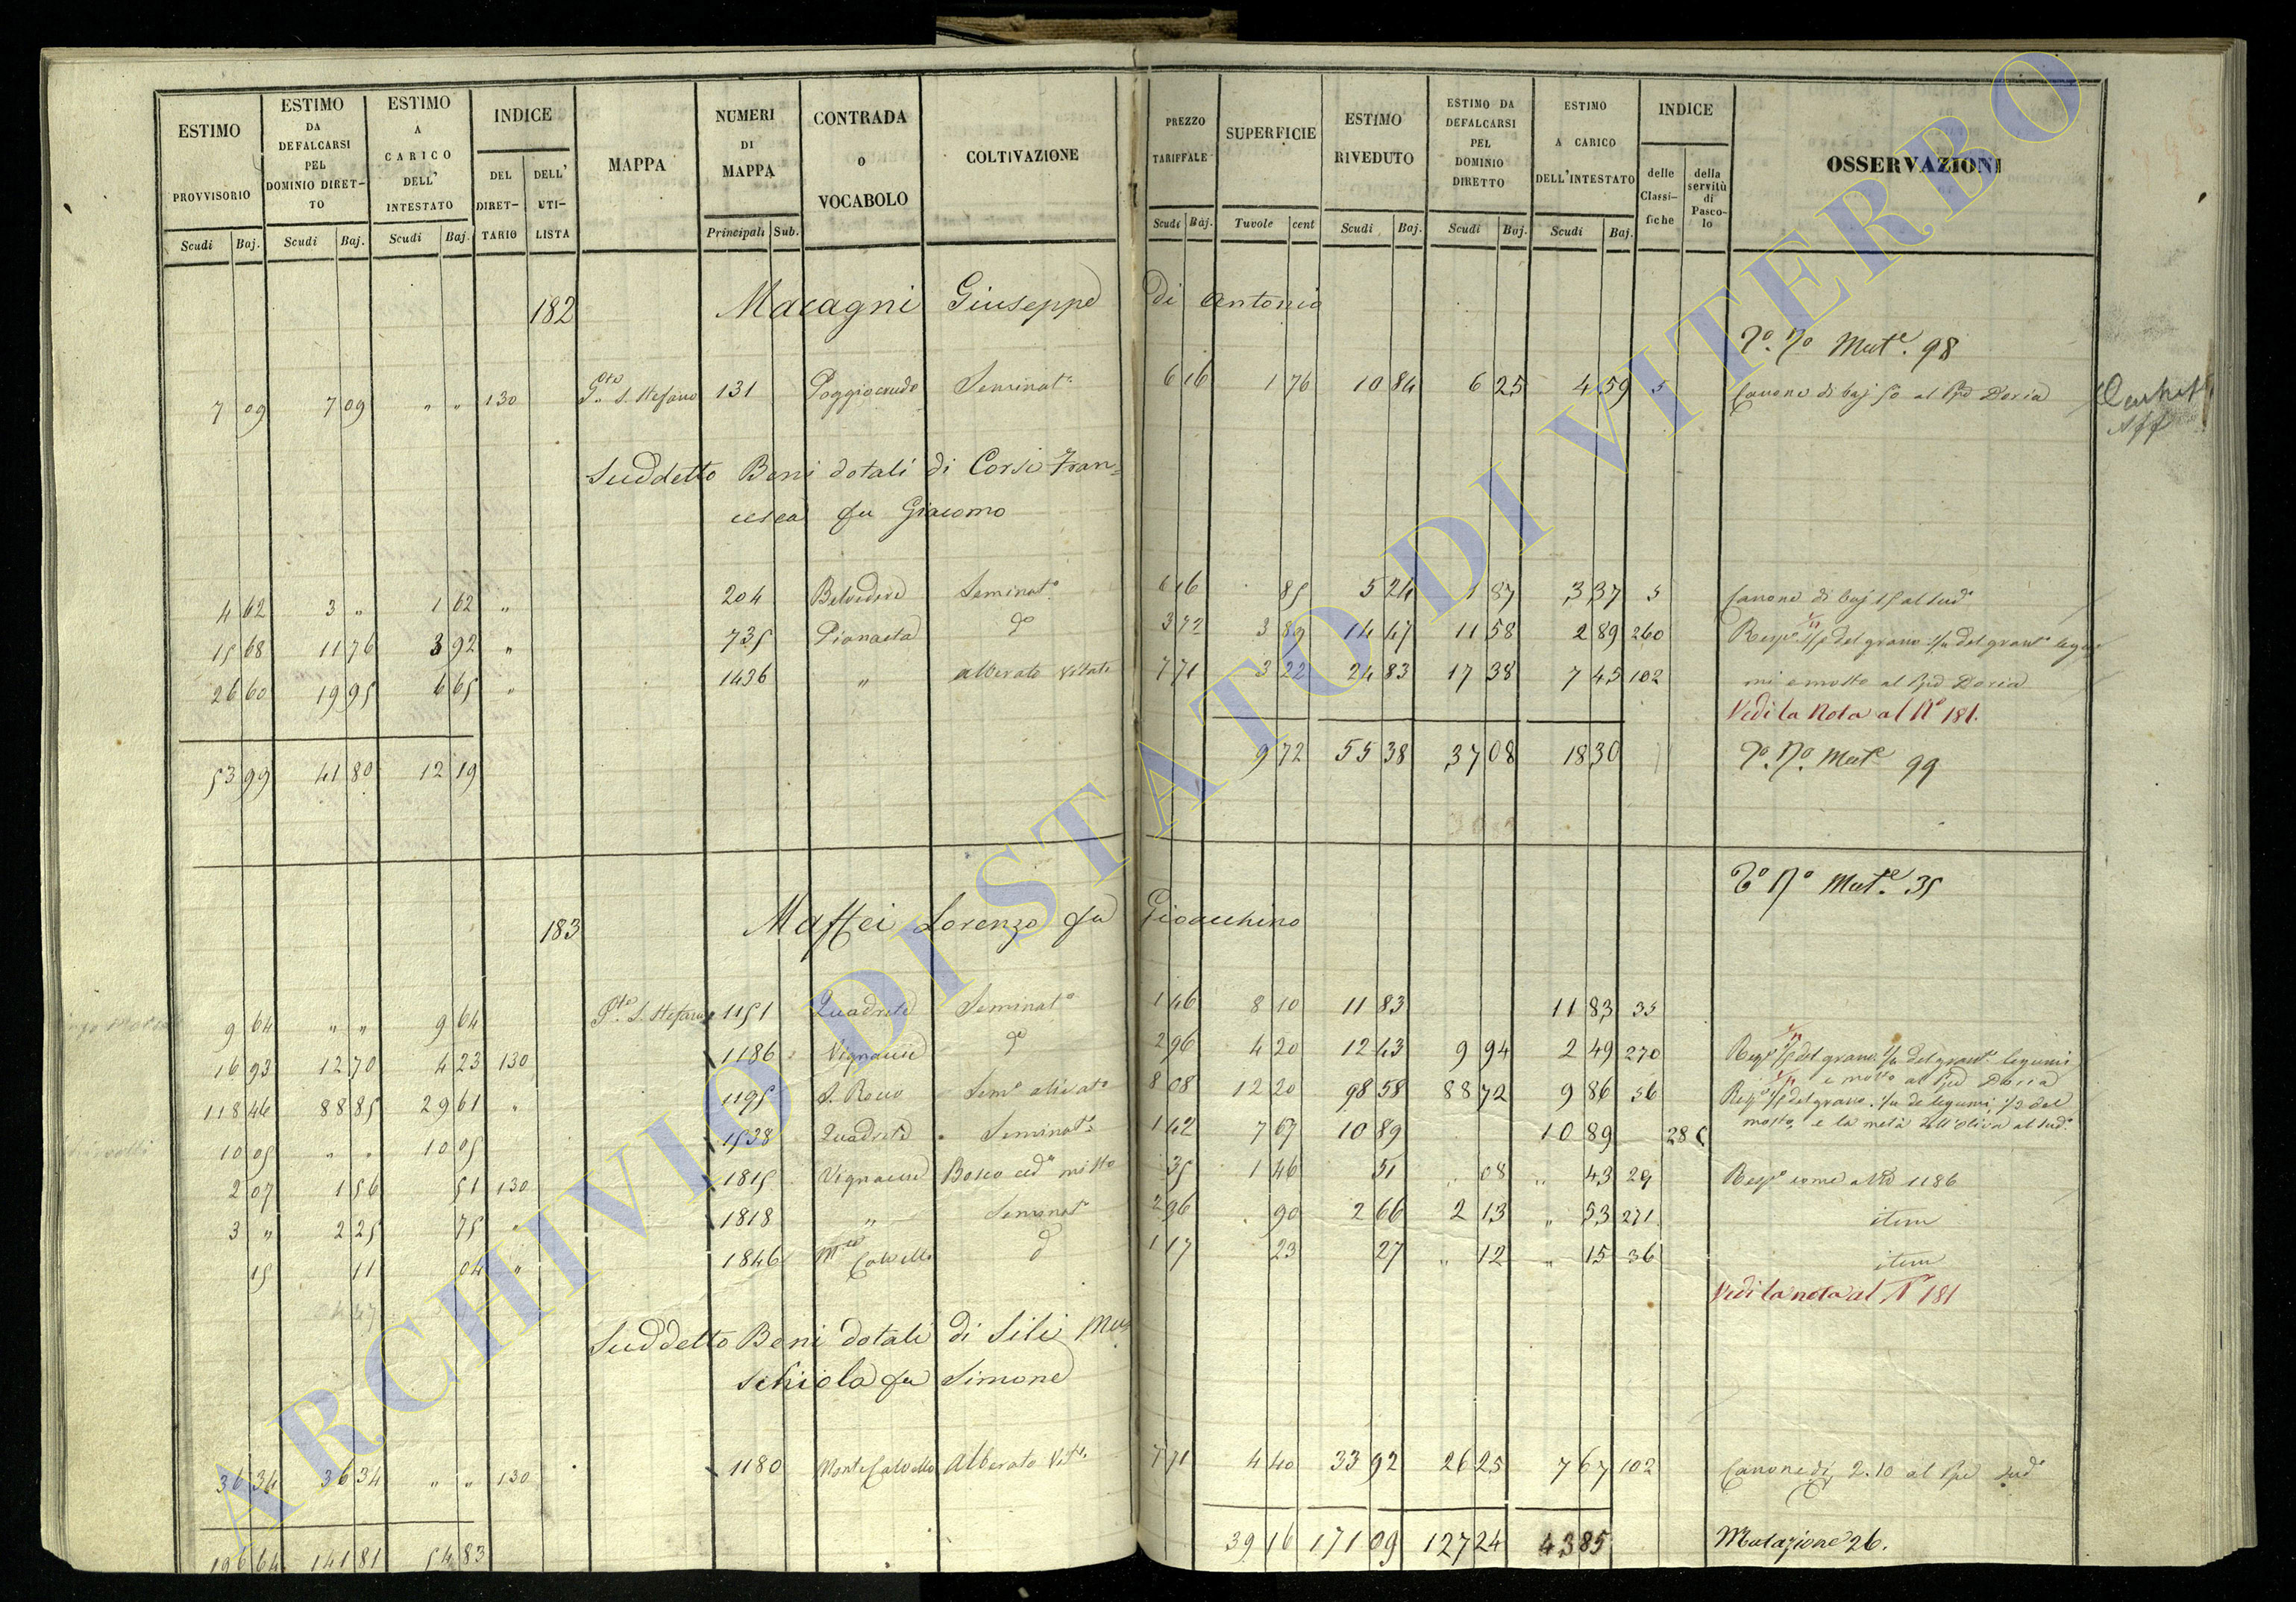 ESTIMO PROVVISORIO Scudi Baj. | ESTIMO DA DEFALCARSI PEL DOMINIO DIRET-TO Scudi Baj. | ESTIMO A CARICO DELL' INTESTATO Scudi Baj. | INDICE DEL DIRET-TARIO | DELL' UTI-LISTA | MAPPA | NUMERI DI MAPPA Principali Sub. | CONTRADA O VOCABOLO | COLTIVAZIONE | PREZZO TARIFFALE Scudi Baj. | SUPERFICIE Tavole cent | ESTIMO RIVEDUTO Scudi Baj. | ESTIMO DA DEFALCARSI PEL DOMINIO DIRETTO Scudi Baj. | ESTIMO A CARICO DELL'INTESTATO Scudi Baj. | INDICE delle Classi-fiche | della servitù di Pasco-lo | OSSERVAZIONI
182 Macagni Giuseppe di Antonio
Mut.e 98
7 09 | 7 09 | " " | 130 | S. Stefano | 131 | Poggiocrudo | Seminat.o | 6 16 | 1 76 | 10 84 | 6 25 | 4 59 | 5 | Canone di baj 50 al Ppe Doria
Suddetto Beni dotali di Corsi Fran=
cesca fu Giacomo
4 62 | 3 " | 1 62 | " | 204 | Belvedere | Seminat.o | 6 16 | 85 | 5 24 | 1 87 | 3 37 | 5 | Canone di baj 15 al sud.o
15 68 | 11 76 | 3 92 | " | 735 | Pianaeta | d.o | 3 72 | 3 89 | 14 47 | 11 58 | 2 89 | 260 | del grano del gran
26 60 | 19 95 | 6 65 | " | 1436 | " | alberato vitato | 7 71 | 3 22 | 24 83 | 17 38 | 7 45 | 102 | mi e mosto al Ppe Doria
Vedi la Nota al N.o 181.
53 99 | 41 80 | 12 19 | 9 72 | 55 38 | 37 08 | 18 30 | Mut.e 99
Mut.e 35
183 Maffei Lorenzo fu Gioacchino
9 64 | " " | 9 64 | S. Stefano | 1151 | Quadrete | Seminat.o | 1 46 | 8 10 | 11 83 | 11 83 | 35
16 93 | 12 70 | 4 23 | 130 | 1186 | Vignaccie | d.o | 2 96 | 4 20 | 12 43 | 9 94 | 2 49 | 270 | del grano del gran legumi
e mosto al Ppe Doria
118 46 | 88 85 | 29 61 | " | 1195 | S. Rocco | Sem.o olivato | 8 08 | 12 20 | 98 58 | 88 72 | 9 86 | 56 | del grano de legumi, 1/2 del
mosto, e la metà dell'oliva al sud.o
10 05 | " " | 10 05 | 1538 | Quadrete | Seminat.o | 1 42 | 7 67 | 10 89 | 10 89 | 28
2 07 | 1 56 | 51 | 130 | 1815 | Vignaccie | Bosco ced.o misto | 35 | 1 46 | 51 | " 08 | " 43 | 29 | come al No 1186
3 " | 2 25 | 75 | " | 1818 | " | Seminat.o | 2 96 | 90 | 2 66 | 2 13 | " 53 | 271 | item
15 | 11 | 04 | " | 1846 | Calvello | d | 1 17 | 23 | 27 | " 12 | " 15 | 36 | item
Vedi la nota al N 181
Suddetto Beni dotali di Sili Mus
schiola fu Simone
36 34 | 36 34 | " " | 130 | 1180 | Montecalvello | Alberato Vit.o | 7 71 | 4 40 | 33 92 | 26 25 | 7 67 | 102 | Canone di 2.10 al Ppe sud.o
196 64 | 141 81 | 54 83 | 39 16 | 171 09 | 127 24 | 43 85 | Mutazione 26.
ARCHIVIO DI STATO DI VITERBO